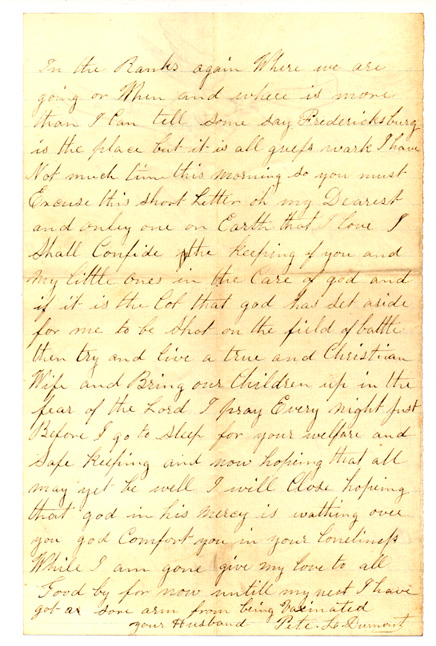 In the Ranks again Where we are
going or When and where is more
than I Can tell some say Fredericksburg
is the place but it is all guess work I have
Not much time this morning so you must
Excuse this short Letter oh my Dearest
and onley one on Earth that I love I
Shall Confide the keeping of you and
my little ones in the Care of god and
if it is the Lot that god has set aside
for me to be shot on the field of battle
then try and live a true and Christian
Wife and Bring our Children up in the
fear of the Lord I pray Every night just
Before I go to sleep for your welfare and
safe keeping and now hoping that all
may yet be well I will Close hopeing
that god in his mercy is wathing over
you god Comfort you in your loneliness
While I am gone give my love to all
Good by for now untill my next I have
got a sore arm from being Vaxinated
your Husband Pete